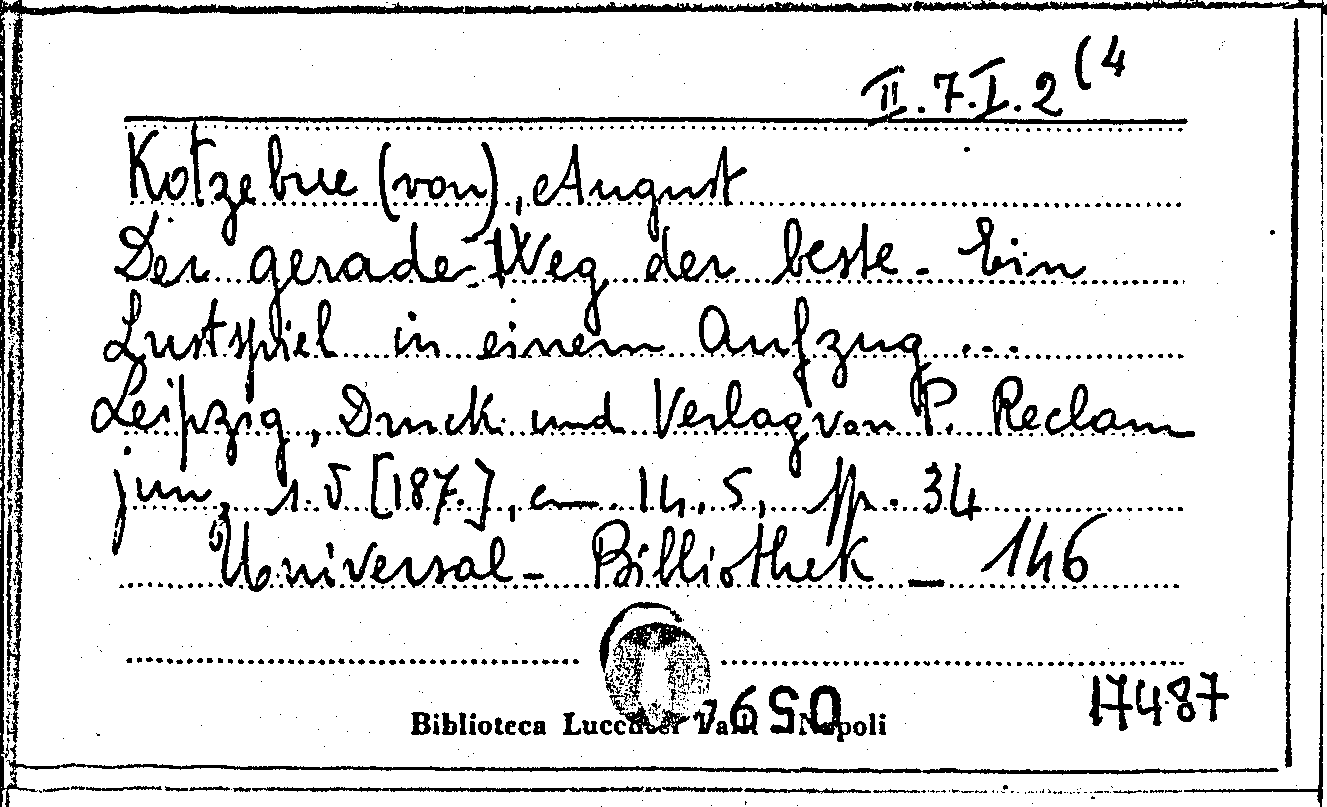 II.7.I.2(4
Kotzebue (von), August
Der gerade Weg der beste. Ein
Lustspiel in einem Aufzug...
Leipzig, Druck und Verlag von P. Reclam
jun, s.d [187.], cm. 14,5, pp. 34
Universal-Bibliothek - 146
17487
Biblioteca Lucchesi Palli Napoli